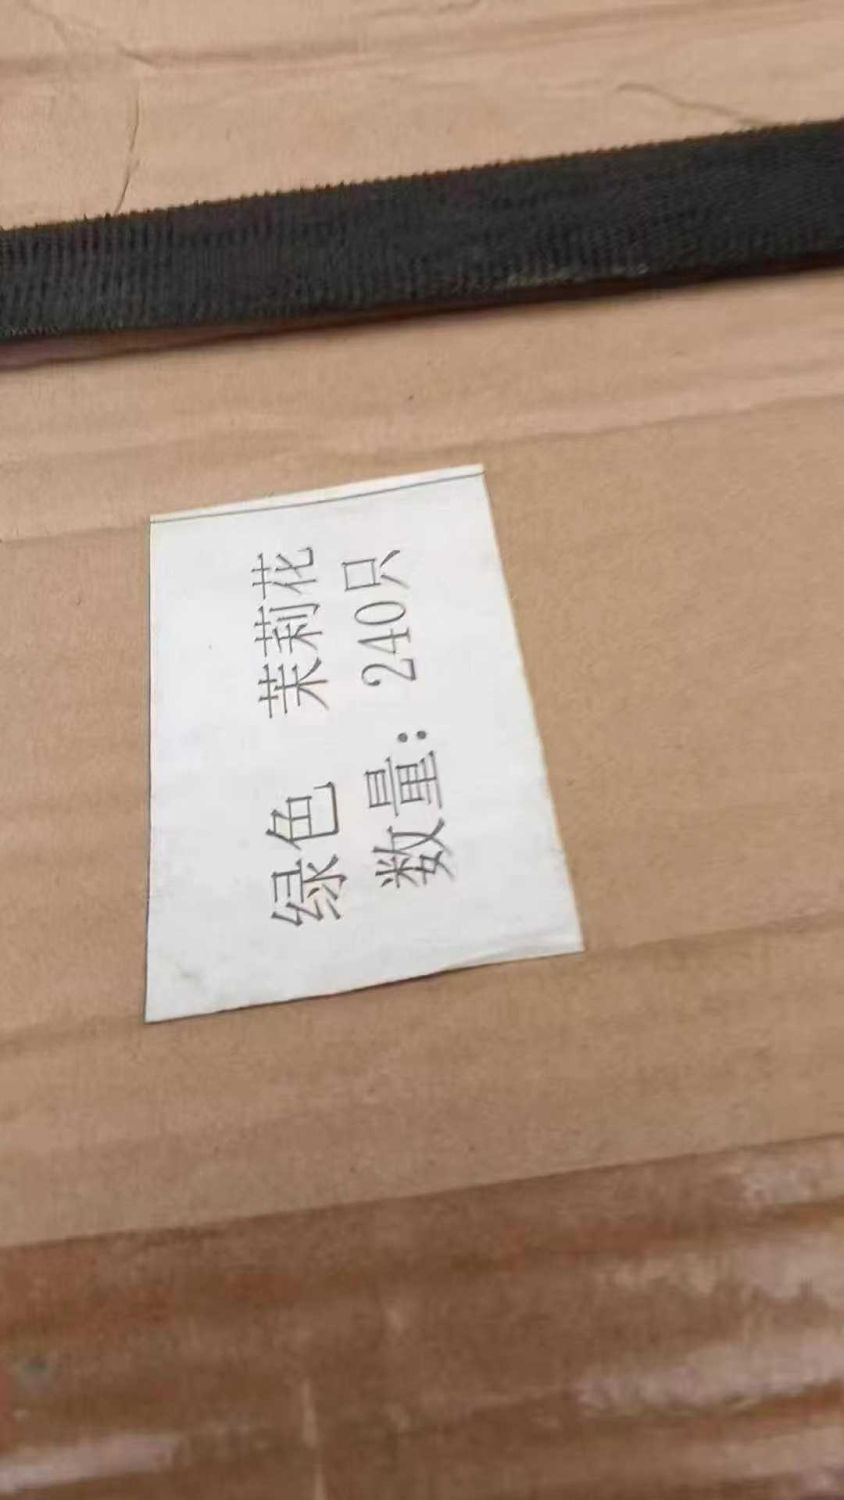 绿色 茉莉花
数量：240只